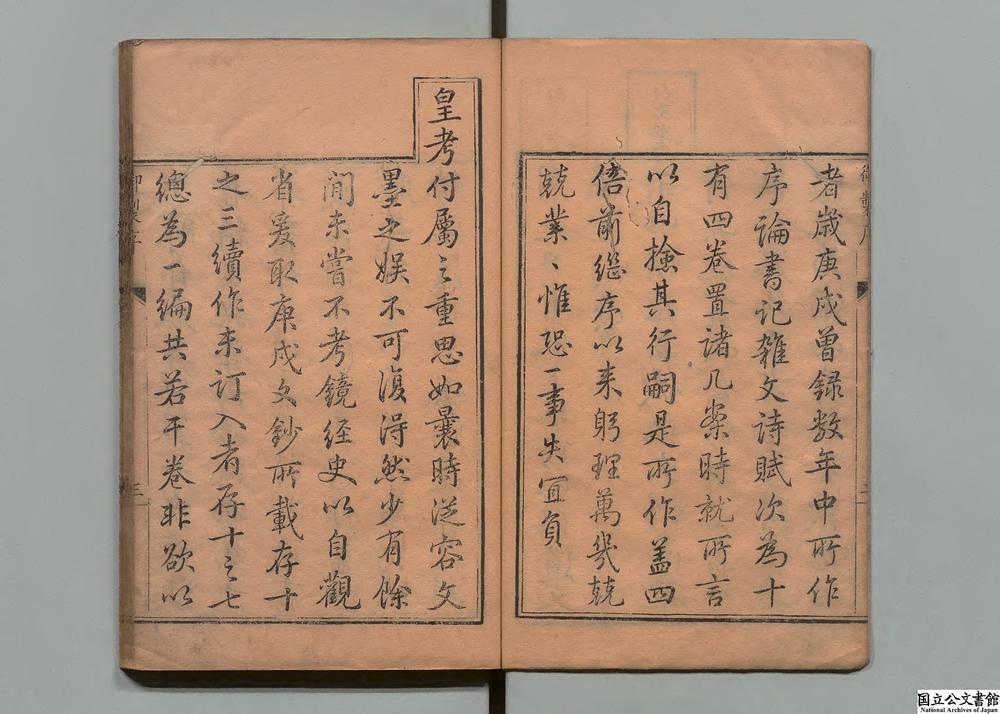 者歲庚戌曾録数年中所作
序論書記雜文詩賦次為十
有四卷置諸几案時就所言
以自撿其行嗣是所作盖四
倍前繼序以来躬理萬幾兢
兢業〻惟恐一事失宜負
皇考付屬之重思如曩時從容文
墨之娱不可復得然少有餘
閒未嘗不考鏡經史以自觀
省爰取庚戌文鈔所載存十
之三續作未訂入者存十之七
總為一編共若干卷非欲以
御製序
三
国立公文書館
National Archives of Japan